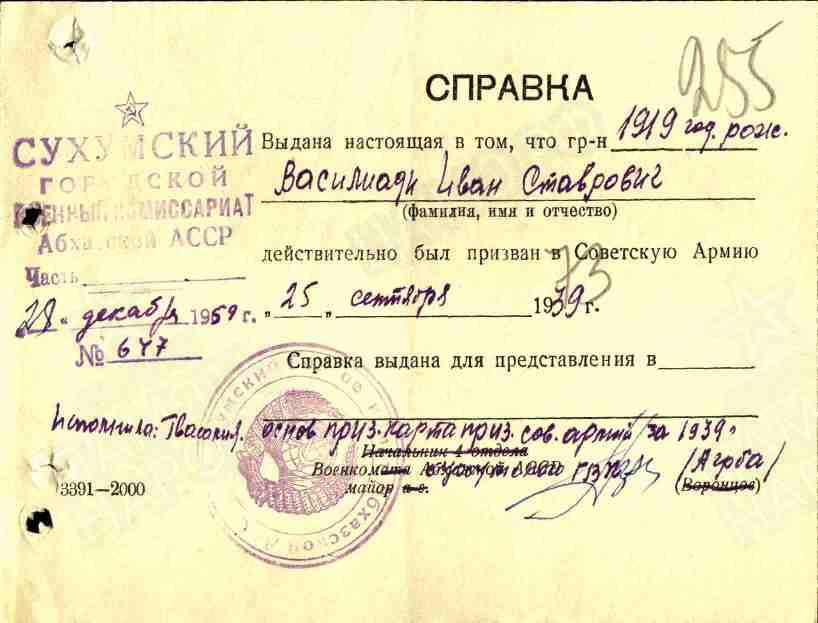 255
СПРАВКА
СУХУМСКИЙ
ГОРОДСКОЙ
ВОЕННЫЙ КОМИССАРИАТ
Абхазской АССР
Часть
28 " декабря 1959 г.
№ 647
Выдана настоящая в том, что гр-н 1919 год. рожд.
Василиади Иван Ставрович
(фамилия, имя и отчество)
действительно был призван в Советскую Армию
"25" сентября 1939 г.
73
Справка выдана для представления в
Исполнила:
основ. приз. карта приз. сов. армии за 1939 г.
Начальник 4 отдела
Военкомата Абхазской АССР ГВК
майор а-с. (Агрба)
(Воронцов)
3391—2000